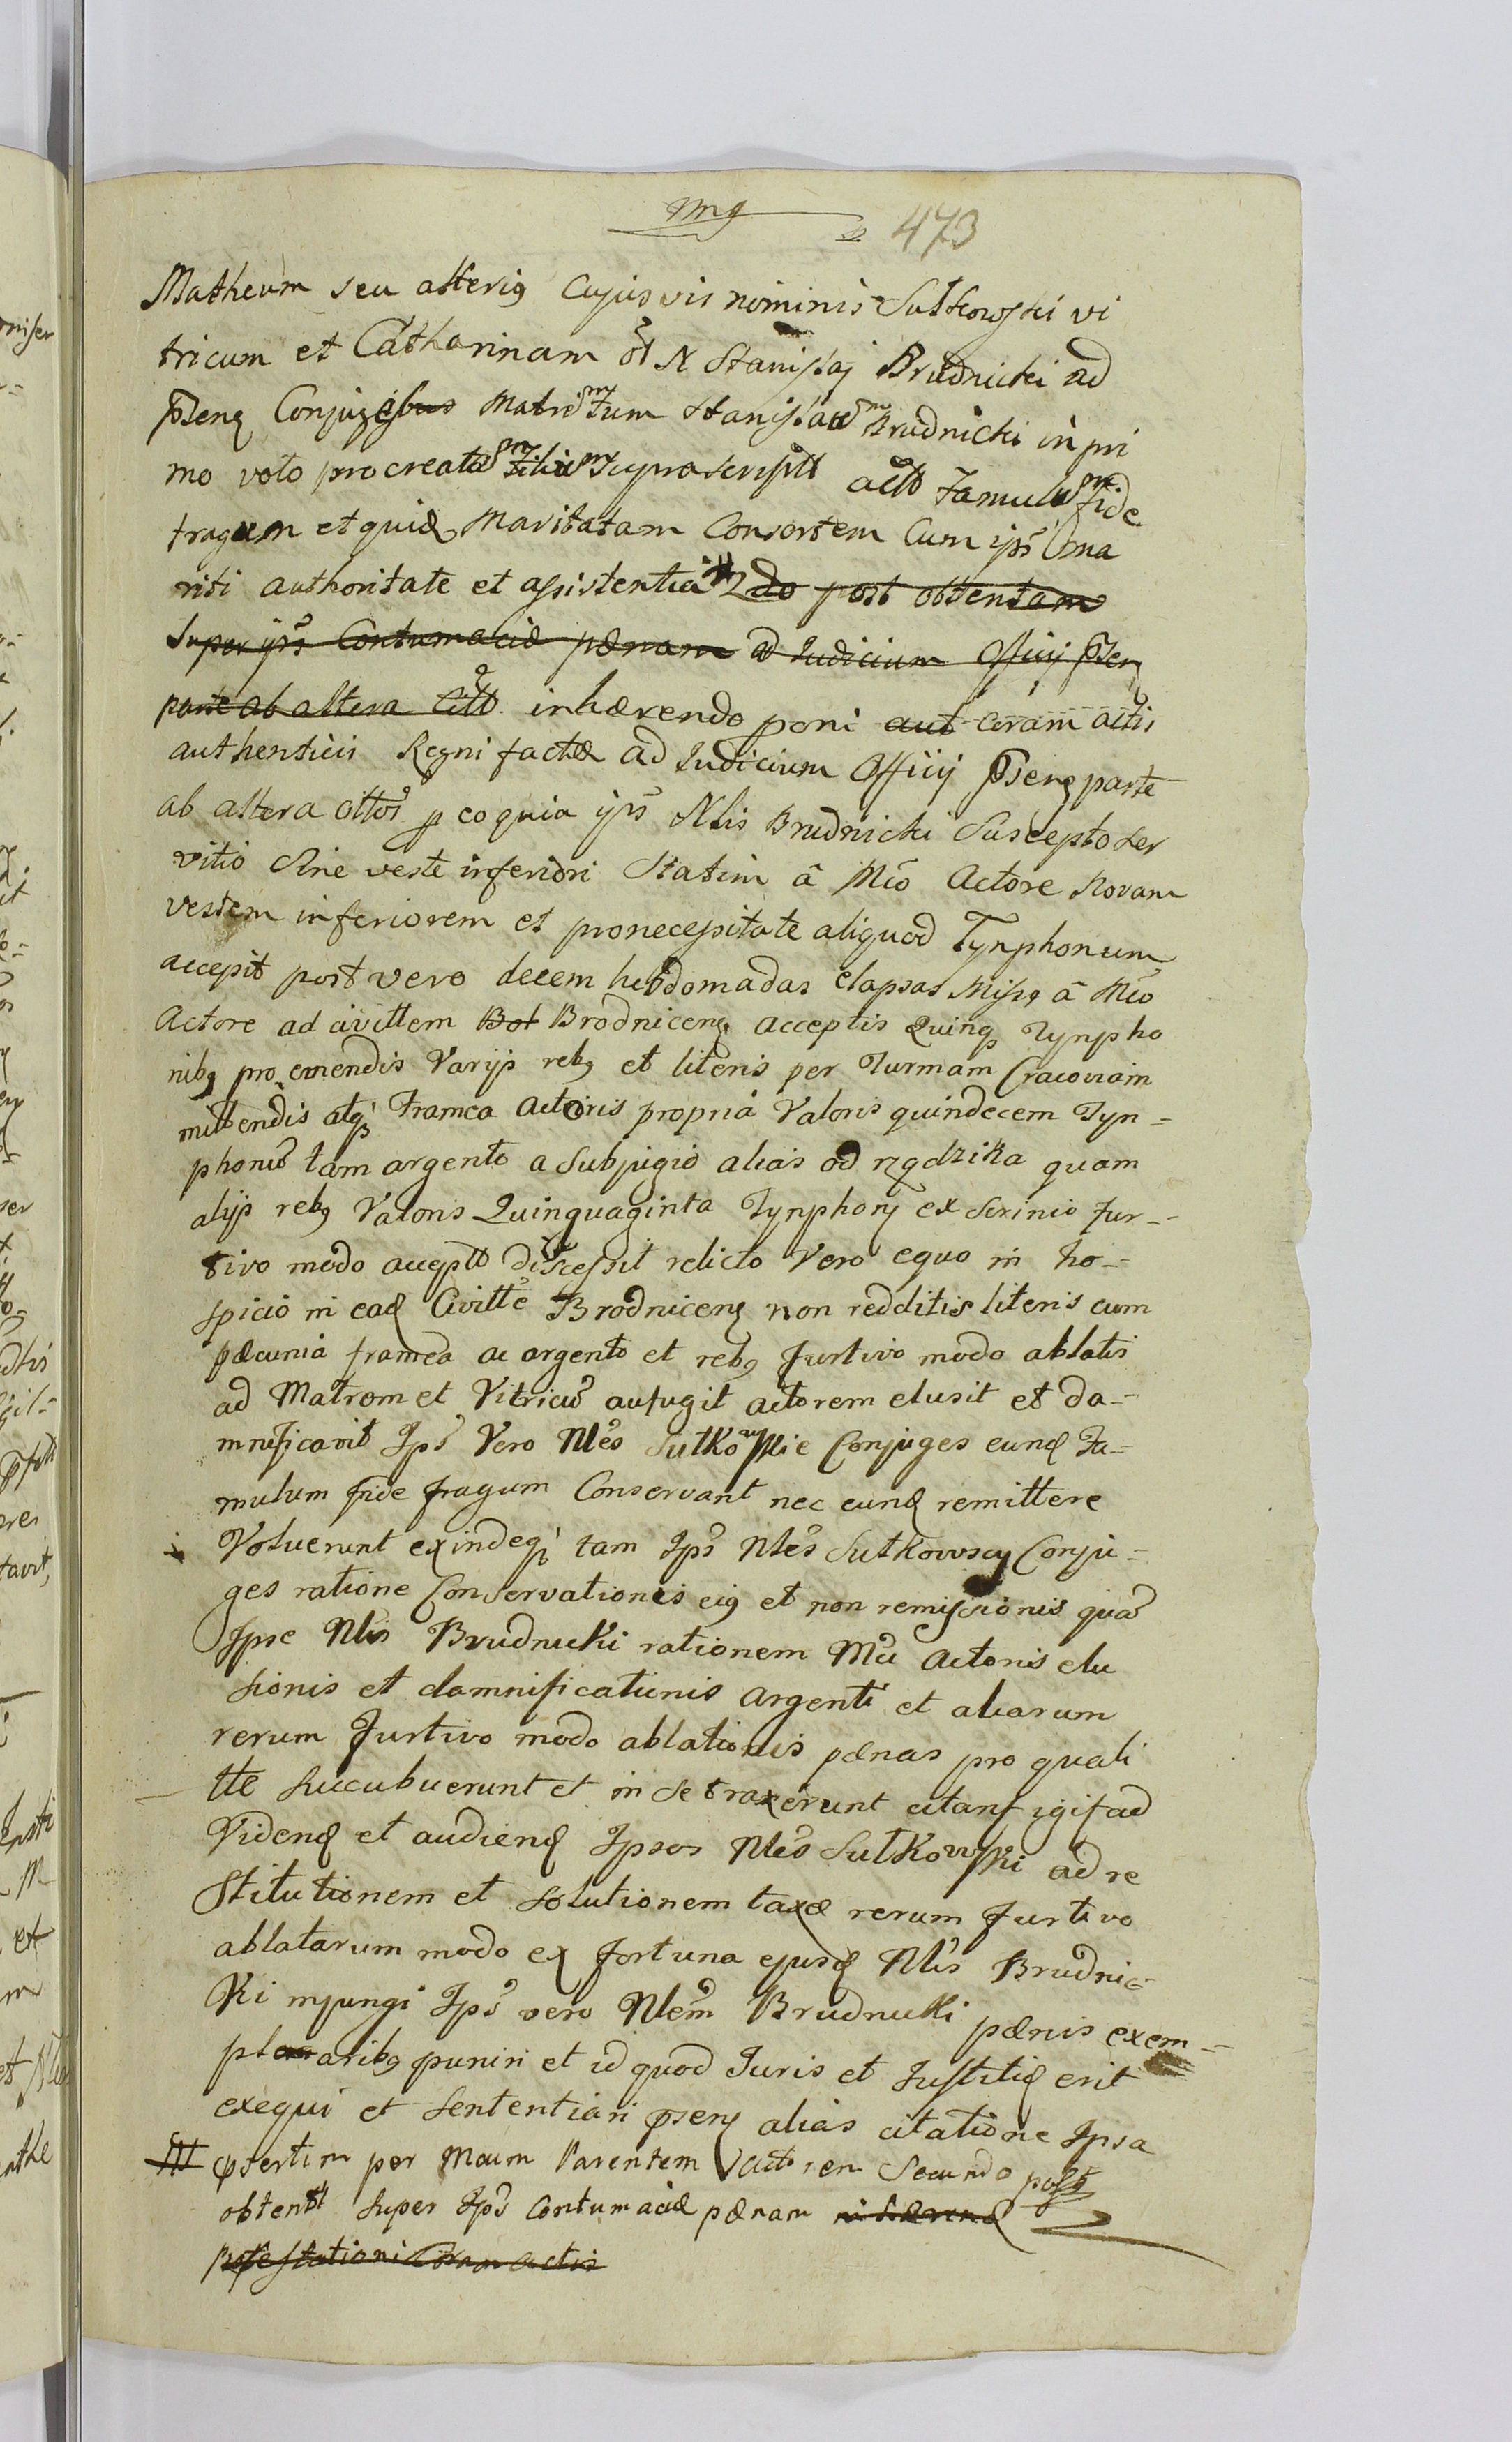 473
Matheum seu alteriq Cujusvis nominis Sutkowski vi
tricum et Catharinam N Stanislaj Brudnicki ad
psenq Conjugibus Matrem tum Stanislaum Brudnicki in pri
mo voto procreatum Filium suprascriptt actt Famulum fide
fragum et quid maritatam Consortem Cum ips ma
riti authoritate et assistentia 2do post obtentam
super ips Contumaciæ pænam ad Judicium Officij psenq
parte ab altera citt inhærendo poni aut coram actis
authenticis Regni factæ ad Judicium Officij psenq parte
ab altera cittos p eo quia ips Nlis Brudnicki Suscepto ser
vitio Sine veste inferiori Statim â Mco Actore Novam
vestem inferiorem et pro necessitate aliquod Tynphonum
accepit post vero decem hebdomadas elapsas Missq â Mco
Actore ad civittem Bot Brodnicenq acceptis Quinq Tynpho
nibq pro emendis Varijs rebq et literis per Turmam Cracoviam
mittendis atq framea Actoris propriâ Valoris quindecem Tyn-
phonũ tam argento a Subjugio alias od rzędzika quam
alijs rebq Valoris Quinquaginta Tynphonq ex Scrinio fur-
tivo modo acceptt discessit relicto Vero equo in ho-
spicio in eadq Civitte Brodnicenq non redditis literis cum
pæcunia framea ac argento et rebq furtivo modo ablatis
ad Matrem et Vitricũ aufugit actorem elusit et da-
mnificavit Ips Vero Nles Sutkowskie Conjuges eundq Fa-
mulum fide fragum Conservant nec eundq remittere
Voluerunt exindeq tam Ips Nles Sutkowscy Conju-
ges ratione Conservationis eiq et non remissionis quã
Ipse Nlis Brudnicki rationem Mci Actoris elu
sionis et damnificationis argenti et aliarum
rerum furtivo modo ablationis pænas pro quali
tte succubuerunt et in se traxerunt citant igit ad
Videndq et audiendq Ipsos Nles Sutkowski ad re
stitutionem et solutionem taxæ rerum furtivo
ablatarum modo ex fortuna ejusdq Nlis Brudnic-
ki injungi Ips vero Nlem Brudnicki pænis exem-
plaribq puniri et id quod Juris et Justitiq erit
exequi et sententiari psenq alias citatione Ipsa
psertim per Mcum Parentem actorem Secundo post
obtentt super Ips Contumaciæ pænam inhærendq
protestationi Coram actis